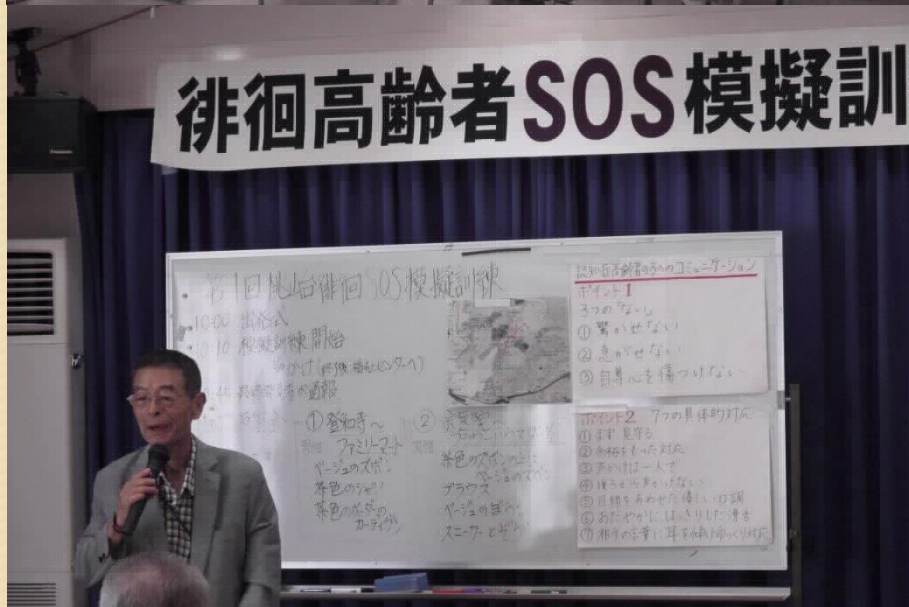 徘徊高齢者SOS模擬訓
Panasonic
第1回桃山台徘徊SOS模擬訓練
10:00 出発式
10:10 模擬訓練開始
①
②
ファミリーマート
ベージュのズボン
茶色のシャツ
茶色のボーダーの
カーディガン
茶色のズボンの上に
ベージュのズボン
ブラウス
ベージュのぼうし
認知症高齢者の方へのコミュニケーション
ポイント1
3つの「ない」
① 驚かせない
② 急がせない
③ 自尊心を傷つけない
ポイント2 7つの具体的対応
① まず見守る
② 余裕をもった対応
③ 声かけは一人で
④ 後ろから声かけない
⑤ 目線をあわせた優しい口調
⑥ おだやかに はっきりした滑舌
⑦ 相手の言葉に耳を傾けゆっくり対応